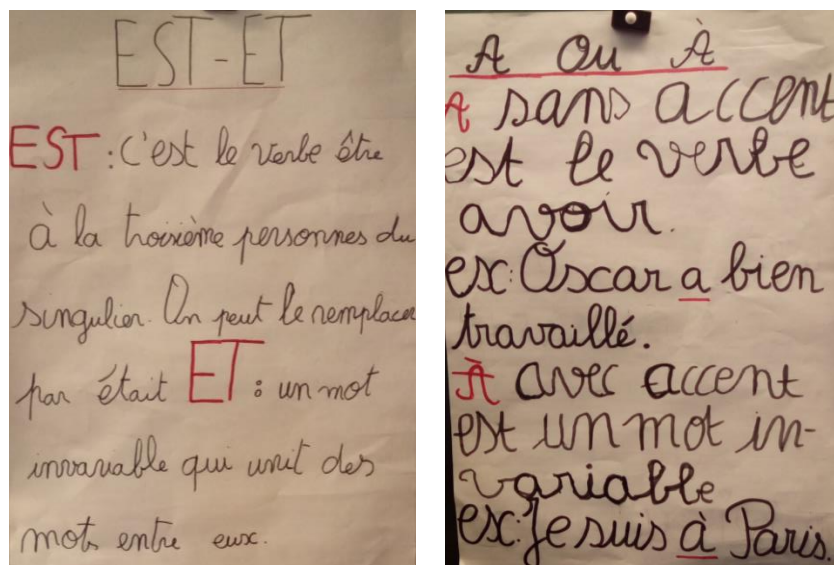 EST-ET
EST : c'est le verbe être
à la troisième personnes du
singulier. On peut le remplacer
par était ET : un mot
invariable qui unit des
mots entre eux.
A ou À
A sans accent
est le verbe
avoir.
ex: Oscar a bien
travaillé.
À avec accent
est un mot in-
variable
ex: Je suis à Paris.